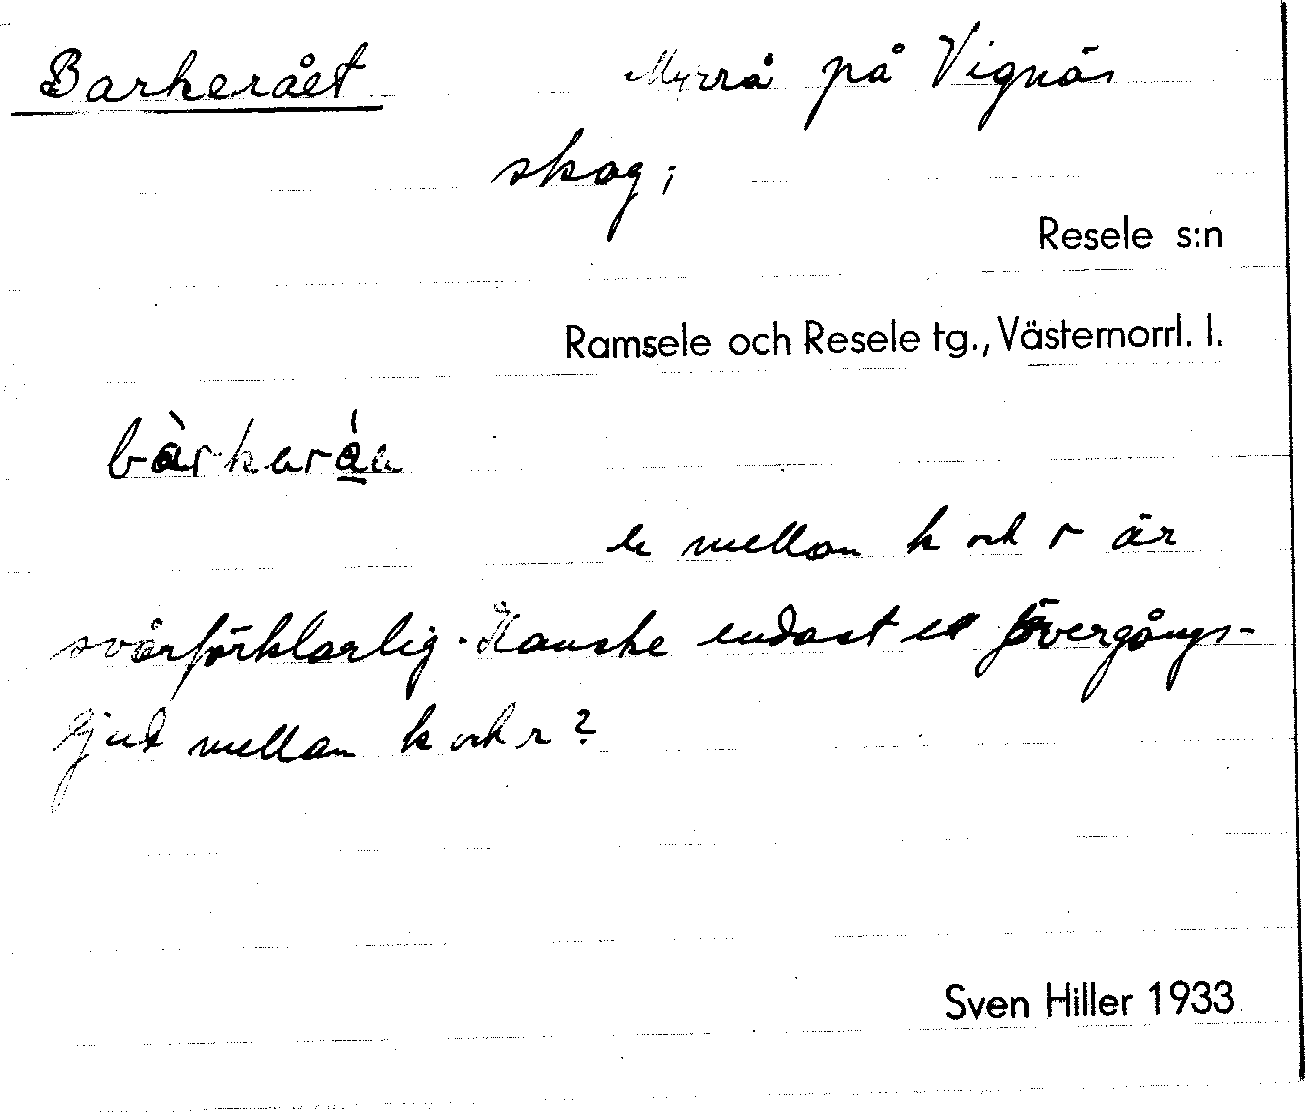 Barkerået Myrrå på Vignäs
skog;
Resele s:n
Ramsele och Resele tg., Västernorrl. l.
bàrkeràe
e mellan k och r är
svårförklarlig. Kanske endast ett övergångs-
ljud mellan k och r?
Sven Hiller 1933